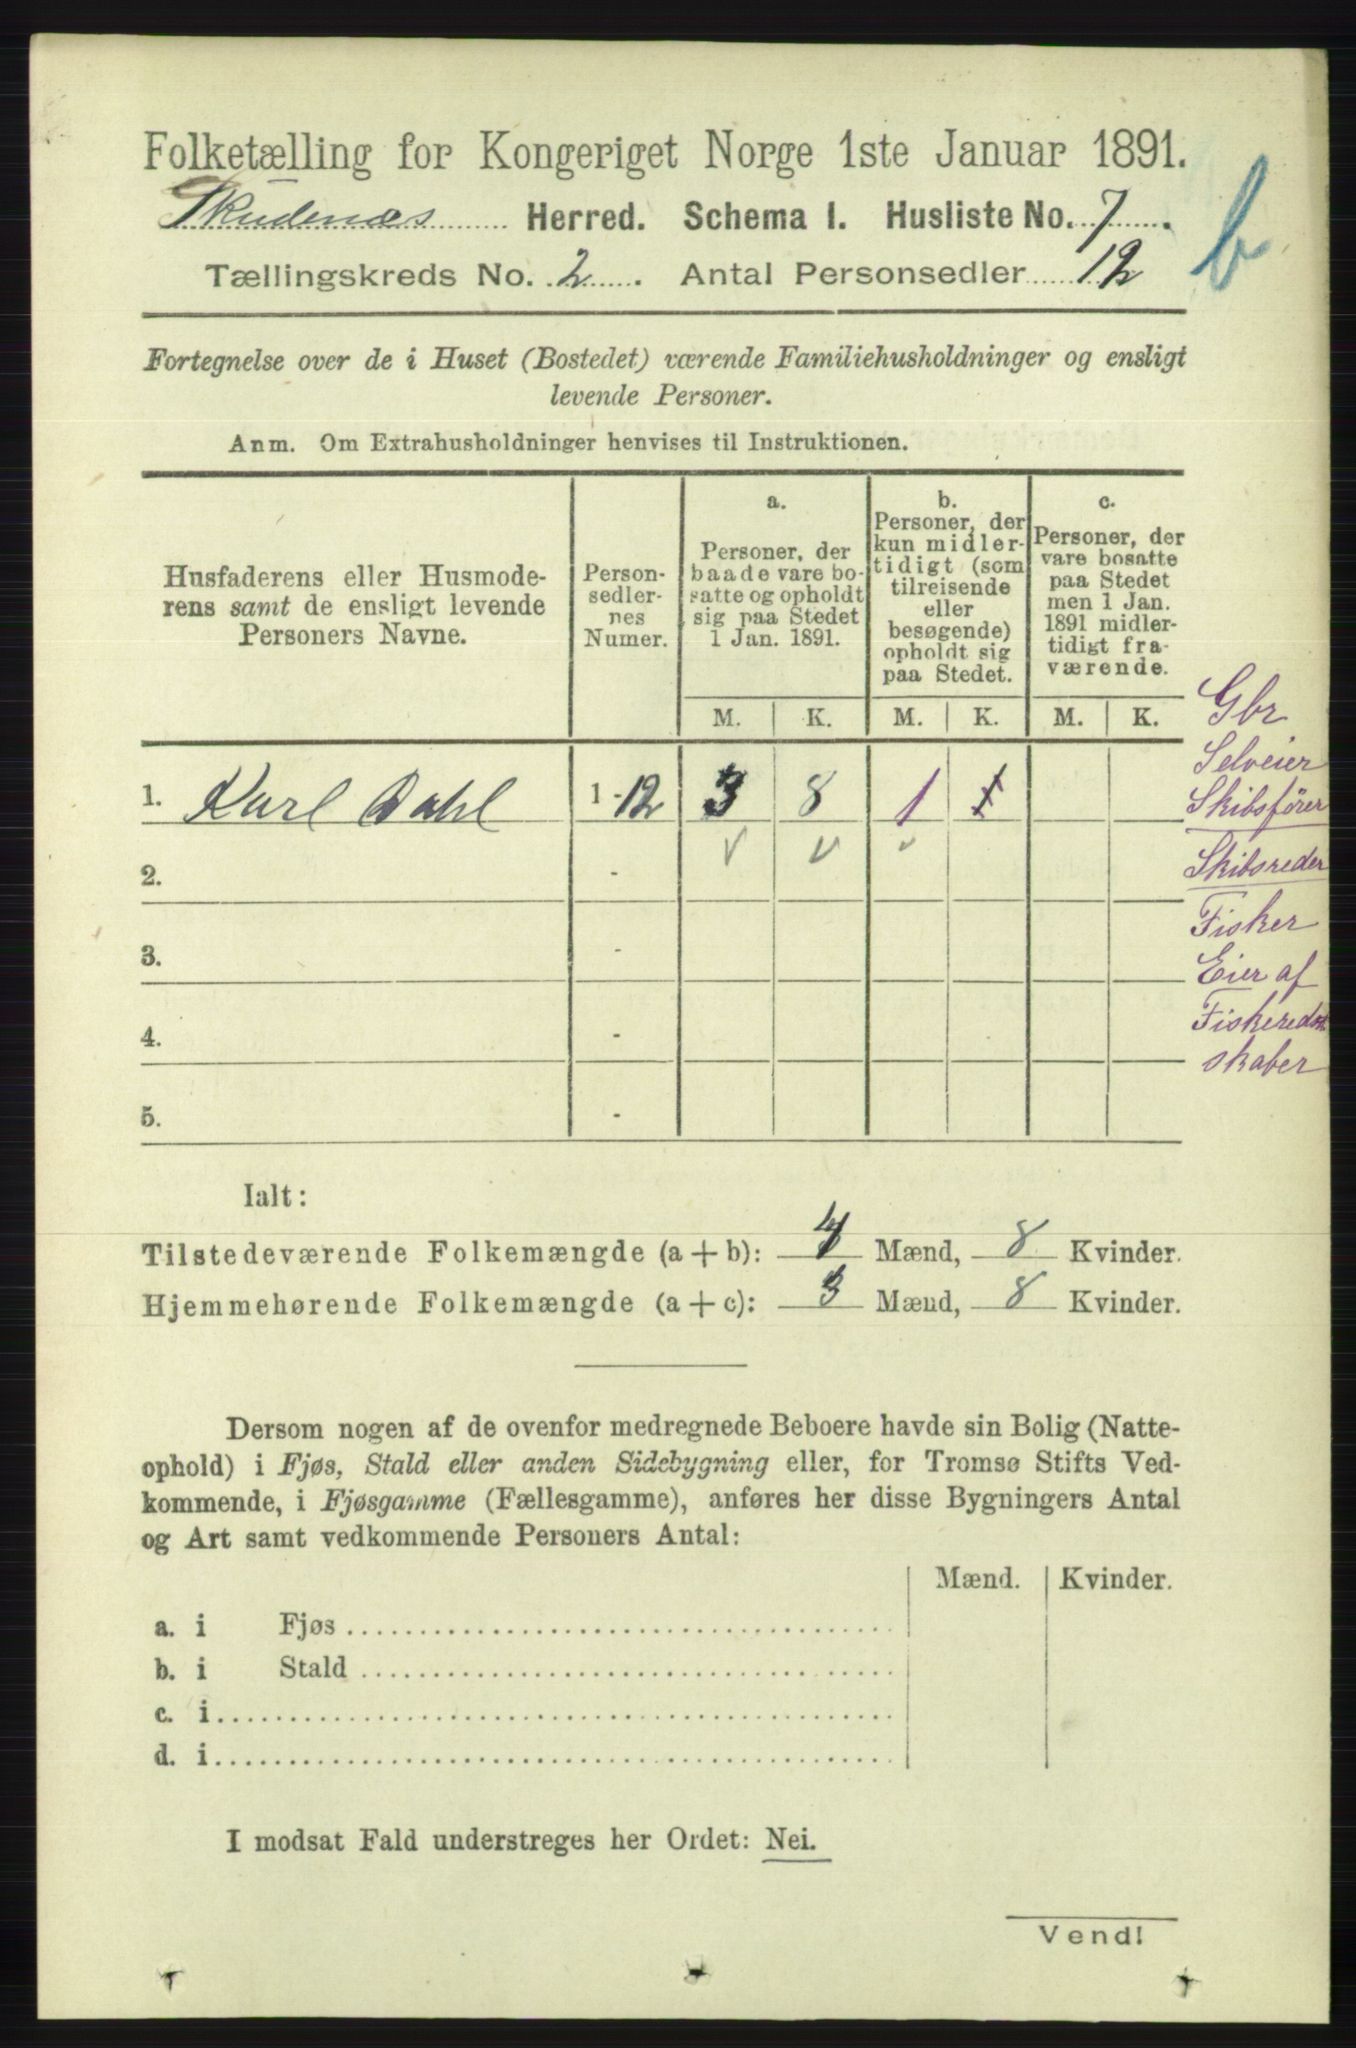 Folketælling for Kongeriget Norge 1ste Januar 1891.
Skudenæs Herred. Schema I. Husliste No. 7.
Tællingskreds No. 2. Antal Personsedler 12
b
Fortegnelse over de i Huset (Bostedet) værende Familiehusholdninger og ensligt
levende Personer.
Anm. Om Extrahusholdninger henvises til Instruktionen.
Husfaderens eller Husmode-
rens samt de ensligt levende
Personers Navne.
Person-
sedler-
nes
Numer.
a.
Personer, der
baade vare bo-
satte og opholdt
sig paa Stedet
1 Jan. 1891.
b.
Personer, der
kun midler-
tidigt (som
tilreisende
eller
besøgende)
opholdt sig
paa Stedet.
c.
Personer, der
vare bosatte
paa Stedet
men 1 Jan.
1891 midler-
tidigt fra-
værende.
M. K. M. K. M. K.
1. Karl Dahl 1 - 12 3 8 1 1
2. -
3. -
4. -
5. -
Gbr
Selveier
Skibsfører
Skibsreder
Fisker
Eier af
Fiskered
skaber
Ialt:
Tilstedeværende Folkemængde (a + b): 4 Mænd, 8 Kvinder.
Hjemmehørende Folkemængde (a + c): 3 Mænd, 8 Kvinder.
Dersom nogen af de ovenfor medregnede Beboere havde sin Bolig (Natte-
ophold) i Fjøs, Stald eller anden Sidebygning eller, for Tromsø Stifts Ved-
kommende, i Fjøsgamme (Fællesgamme), anføres her disse Bygningers Antal
og Art samt vedkommende Personers Antal:
Mænd. Kvinder.
a. i Fjøs
b. i Stald
c. i
d. i
I modsat Fald understreges her Ordet: Nei.
Vend!